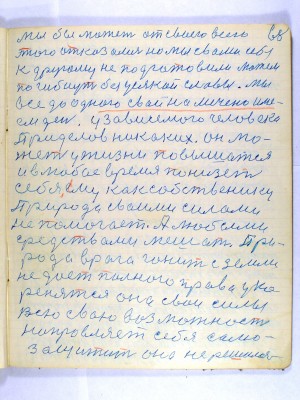 мы бы может от своего всего
этого отказался но мы свами себя
к другому не подготовили можем
погибнут без всякой славы. мы
все до одного свай намичено име-
ем ден. узависемого человека
пределов никаких. он мо-
жет ужизни повышатся
и влюбое время понизет
себя, ему как собственику
Природа своими силами
не помогает. А любыми
средствами мешает. При-
рода врага гонит с земли
не дает полного права ука-
ренятся она свои силы
всю сваю возможность
напровляет себя само-
защитит она не решила